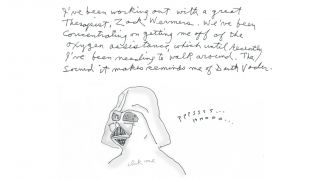 I've been working out with a great
Therapist, Zack Warmers. We've been
concentrating on getting me off of the
oxygen assistance, which until recently
I've been needing to walk around. The
sound it makes reminds me of Darth Vader.
PPPSSSS...
HHHAAA...
click me